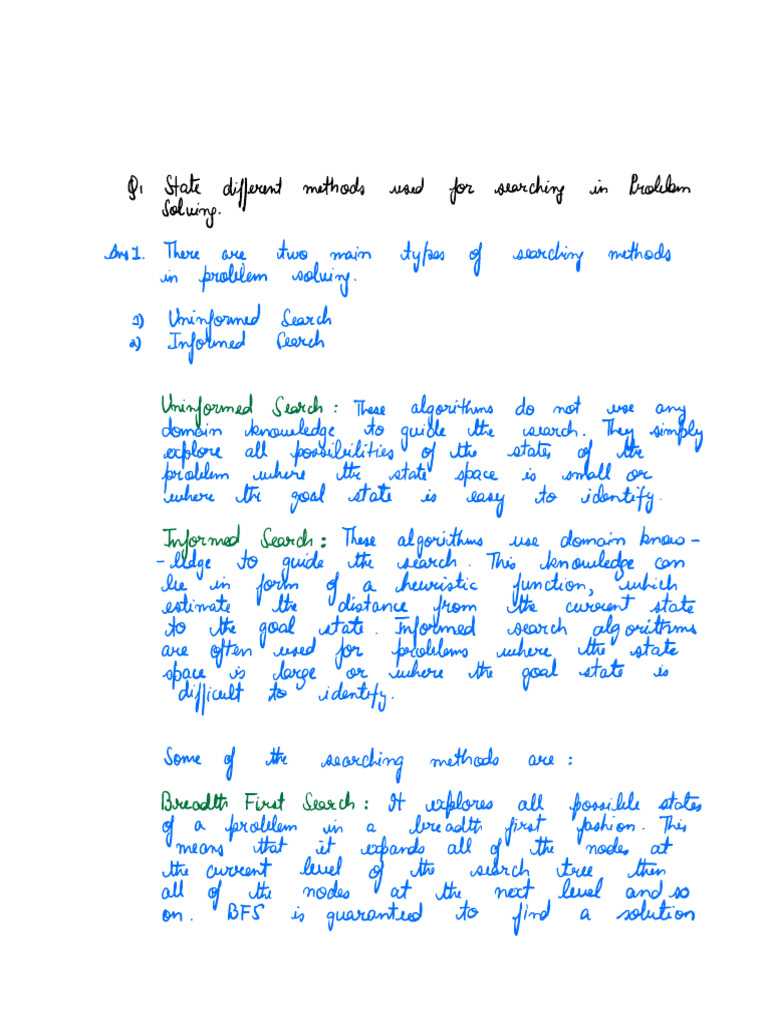 Q1 State different methods used for searching in Problem
Solving.
Ans 1. There are two main types of searching methods
in problem solving.
1) Uninformed Search
2) Informed Search
Uninformed Search : These algorithms do not use any
domain knowledge to guide the search. They simply
explore all possibilities of the states of the
problem where the state space is small or
where the goal state is easy to identify.
Informed Search : These algorithms use domain know -
- lledge to guide the search. This knowledge can
be in form of a heuristic function, which
estimate the distance from the current state
to the goal state. Informed search algorithms
are often used for problems where the state
space is large or where the goal state is
difficult to identify.
Some of the searching methods are :
Breadth First Search : It explores all possible states
of a problem in a breadth first fashion. This
means that it expands all of the nodes at
the current level of the search tree, then
all of the nodes at the next level and so
on. BFS is guaranteed to find a solution